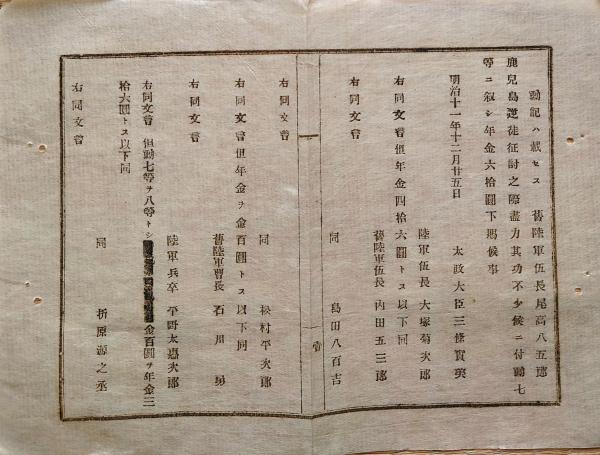 勳記ハ載セス　舊陸軍伍長尾高八五郎
鹿兒島逆徒征討之際盡力其功不少候ニ付勳七
等ニ叙シ年金六拾圓下賜候事
明治十一年十二月廿五日　太政大臣三條實美
陸軍伍長　大塚菊次郎
右同文書但年金四拾六圓トス以下同
舊陸軍伍長　内田五三郎
右同文書　同　島田八百吉
壹
右同文書　同　松村平次郎
右同文書但年金ヲ金百圓トス以下同
舊陸軍曹長　石川勇
右同文書　陸軍兵卒　平野太嘉次郎
右同文書　但勳七等ヲ八等トシ金百圓ヲ年金三
拾六圓トス以下同
右同文書　同　折原源之丞